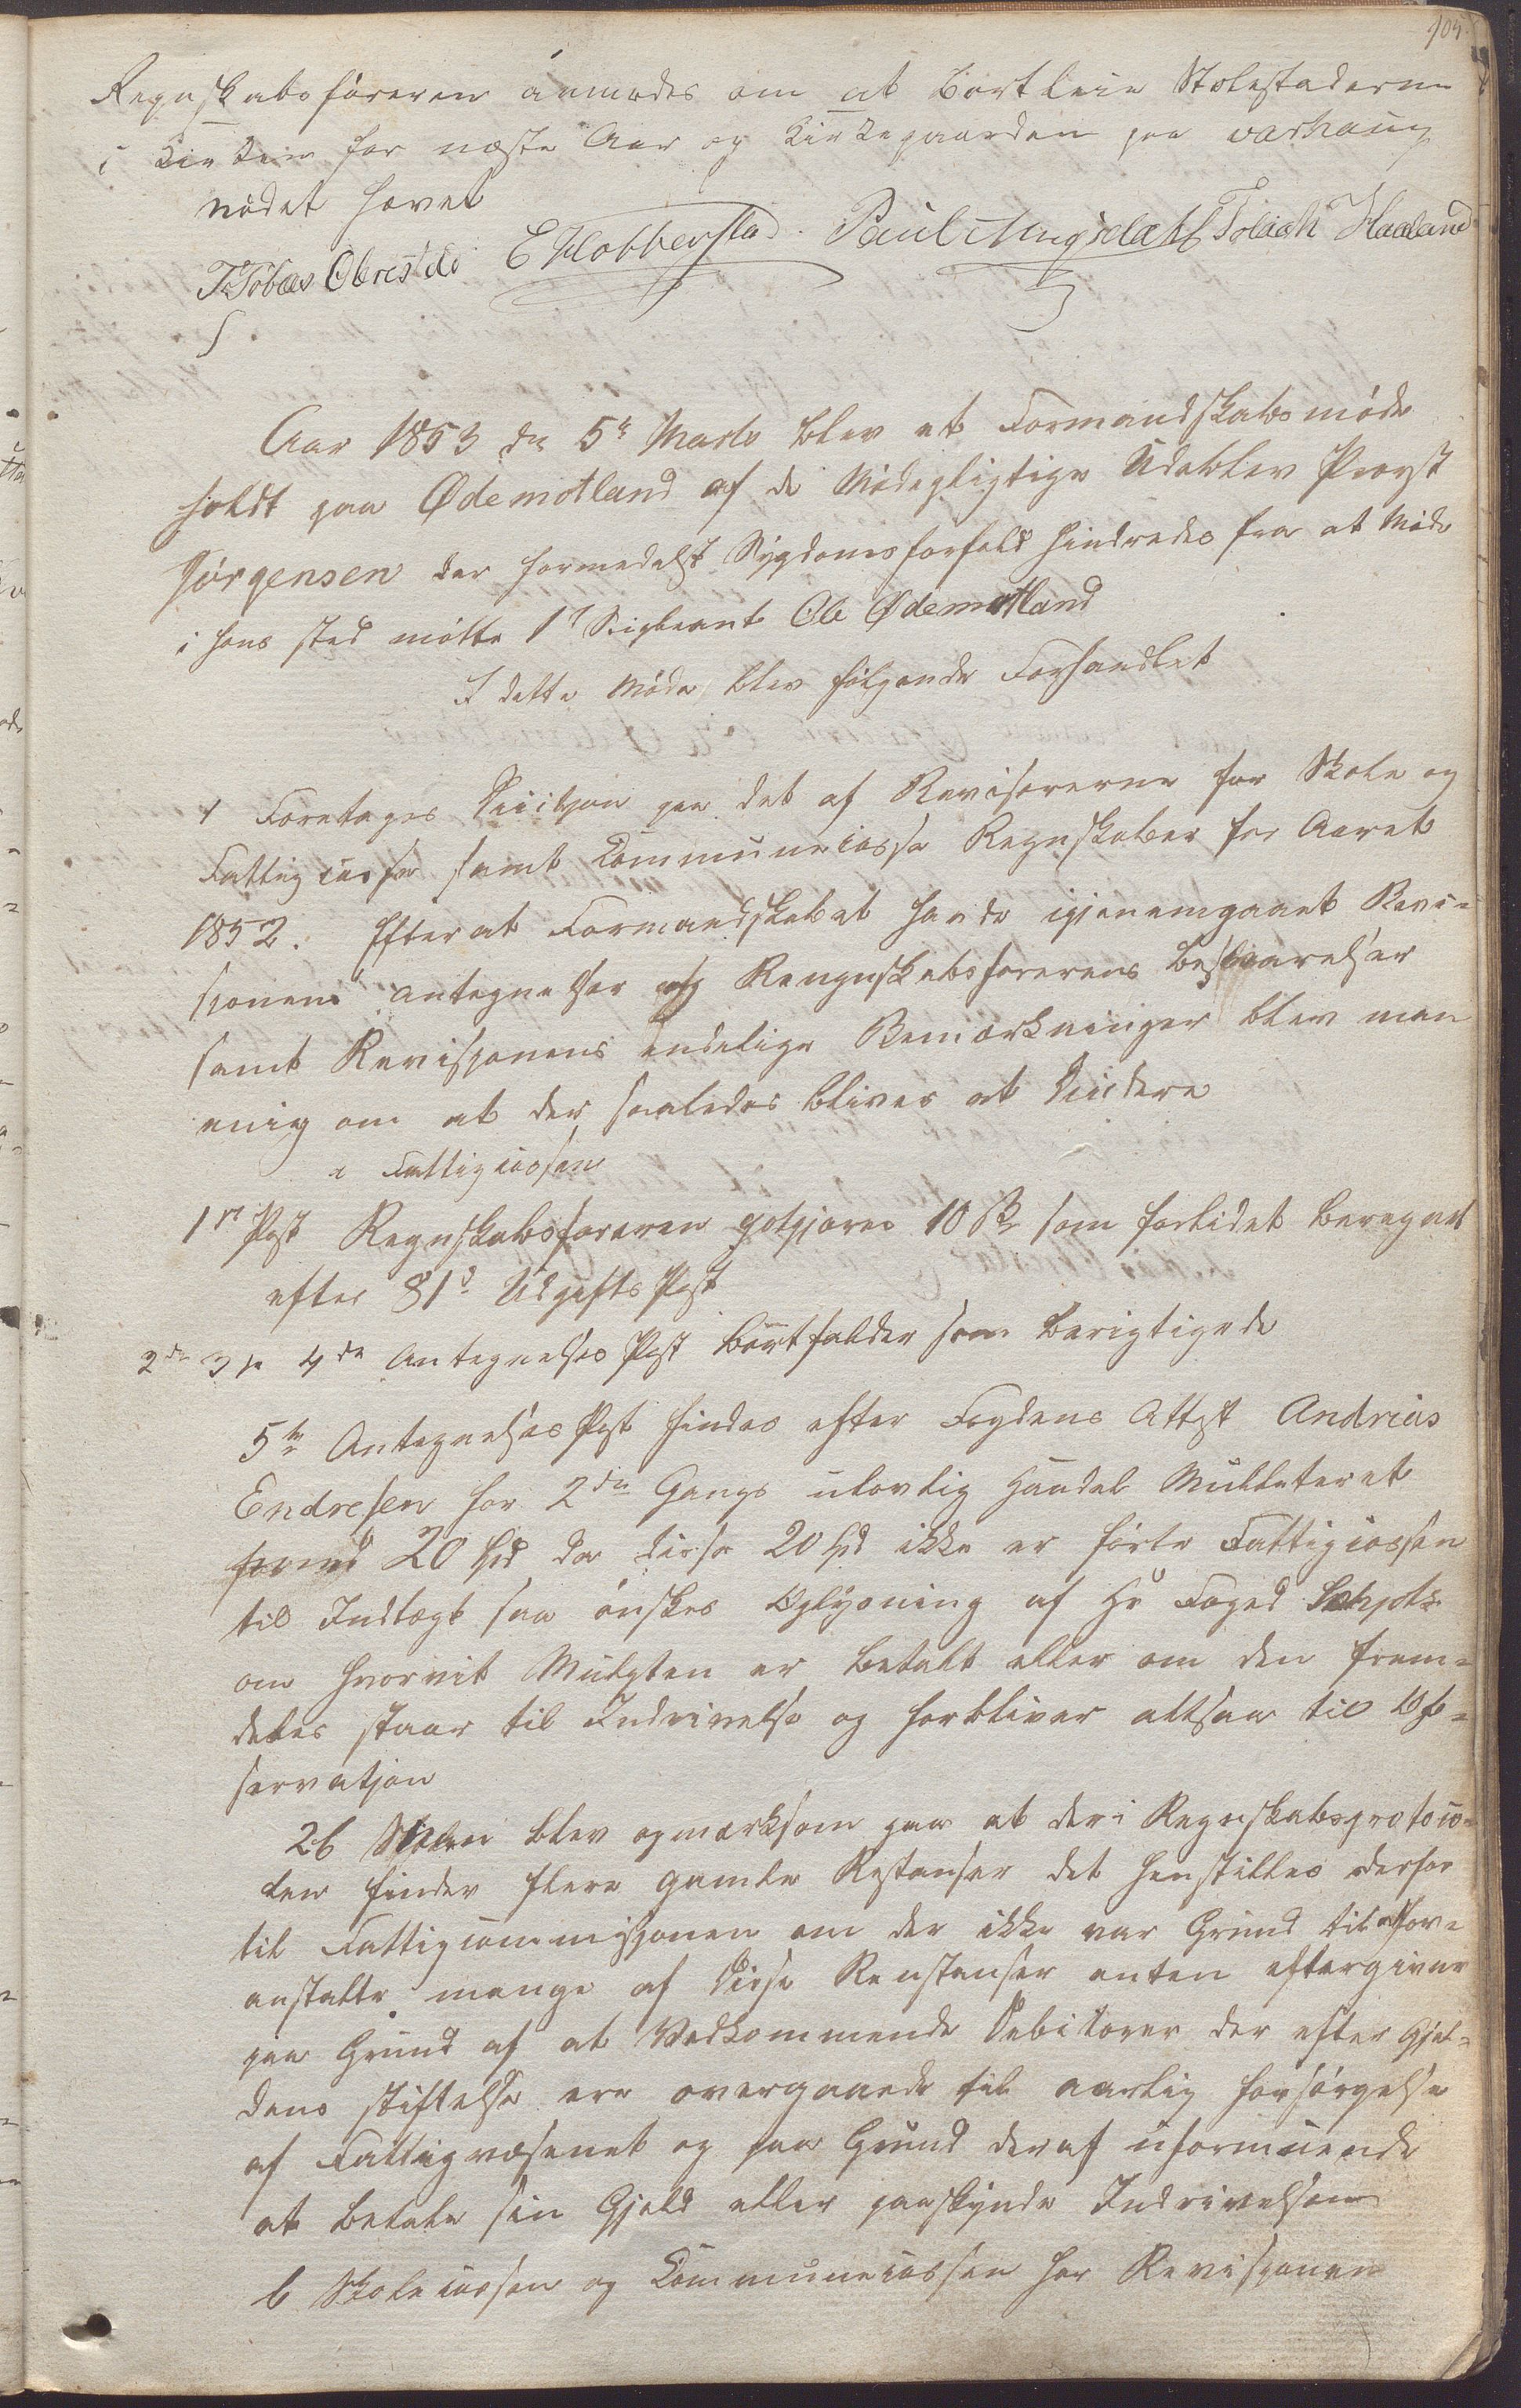 105.
Regnskabsføreren anmodes om at bortleie Stolestaderne
i Kirken for næste Aar og Kirkegaarden paa Varhaug
mødet hævet
T Tobias Obrestd E Hobberstad. Paul Ungsdahl Tobias Haaland
Aar 1853 dn 5te Marts blev et Formandskabsmøde
holdt paa Ødemotland af de Mødepligtige Udeblev Provst
Jørgensen der formedelst Sygdomsforfald hindredes fra at Møde
i hans sted møtte 1ste Sergeant Ole Ødemotland
I dette Møde blev følgende Forhandlet
1 Foretages Desitjon paa det af Revisorerne for Skole og
Fattigcasse samt Communecasse Regnskaber for Aaret
1852. Efter at Formandskabet havde igjenemgaaet Revi-
sjonens antegnelser og Rengnskabsførerens besvarelser
samt Revisjonens endelige Bemærkninger blev man
enig om at der saaledes bliver at Desidere
a Fattigcassen
1ste Post Regnskabsføreren gotgjøres 10 s som forlidet beregnet
efter 81de Udgifts Post
2den 3je 4de Antegnelses Post bortfalder som berigtigede
5te Antegnelses Post findes efter Fogdens Attest Andreas
Endresen for 2den Gangs ulovlig Handel Mulkteret
20 Spd da disse 20 Spd ikke er førte Fattigcassen
til Indtægt saa ønskes Oplysning af Hr Foged
om hvorvit Mulgten er betalt eller om den frem-
deles staar til Indrivelse og forbliver altsaa til Ob-
servatjon
26 blev opmærksom paa at der i Regnskabsprotoco-
len findes flere gamle Restanser det henstilles derfor
til Fattigcommisjonen om der ikke var Grund til at for-
anstalte mange af disse Renstanser enten eftergivne
paa Grund af at Vedkommende Debitorer der efter Gjel-
dens stiftelse ere overgaaede til aarlig forsørgelse
af Fattigvæsenet og paa Grund deraf uformuende
at betale sin Gjeld eller paaskynde Indrivelsen
b Skolecassen og Communecassen har Revisjonen